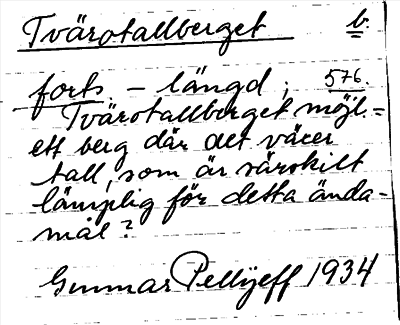 Tvärotallberget b.
forts. – längd; 576.
Tvärotallberget möjl. =
ett berg där det växer
tall, som är särskilt
lämplig för detta ända-
mål?
Gunnar Pellijeff 1934